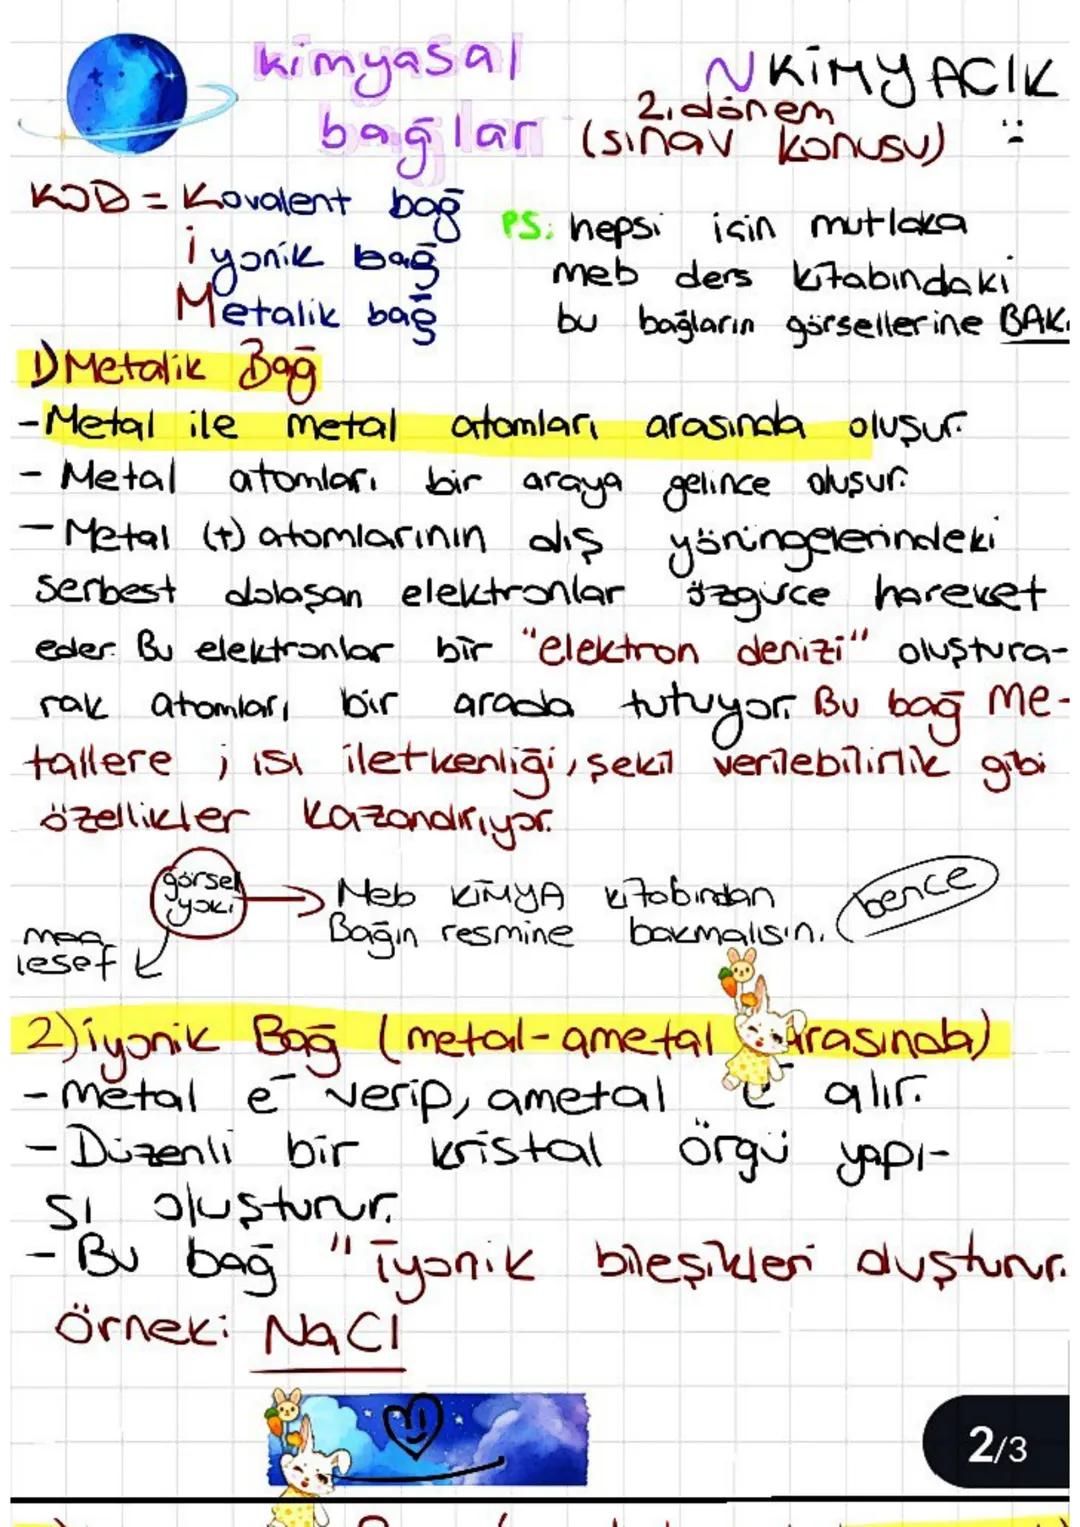 kimyasal
bağlar
NKİMYACIK
2.dönem
(sınav konusu)
KOD = Kovalent bağ
İyonik bağ
Metalik bağ
PS: hepsi için mutlaka
meb ders kitabındaki
bu bağların görsellerine BAK.
1)Metalik Bağ
-Metal ile metal atomları arasında oluşur.
- Metal atomları bir araya gelince oluşur.
- Metal (+) atomlarının dış yörüngelerindeki
serbest dolaşan elektronlar özgürce hareket
eder. Bu elektronlar bir "elektron denizi" oluştura-
rak atomları bir arada tutuyor. Bu bağ me-
tallere ; ısı iletkenliği, şekil verilebilirlik gibi
özellikler kazandırıyor.
görsel
yok:
Meb KİMYA kitabından
Bağın resmine bakmalısın.
bence
maa
lesef
2)İyonik Bağ (metal-ametal arasında)
- metal e⁻ verip, ametal e⁻ alır.
- Düzenli bir kristal örgü yapı-
sı oluşturur.
- Bu bağ "iyonik bileşikleri oluşturur.
Örnek: NaCl
2/3